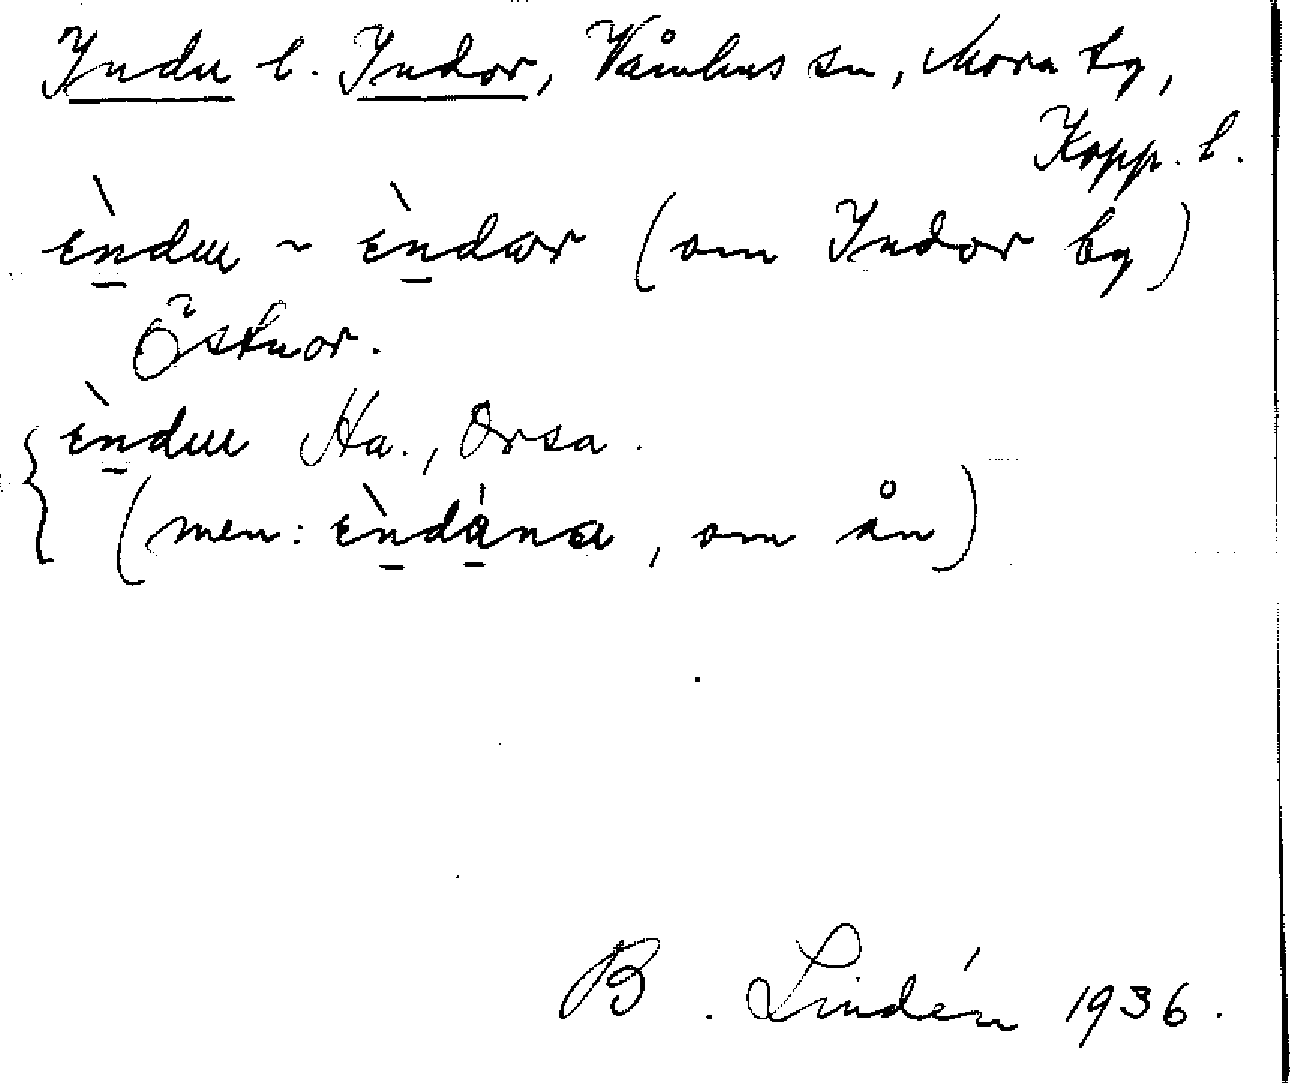 Indu l. Indor, Våmhus sn, Mora tg,
Kopp. l.
èndu ~ èndor (om Indor by)
Östnor.
èndu Ha., Orsa.
(men: èndána, om ån)
B. Lindén 1936.